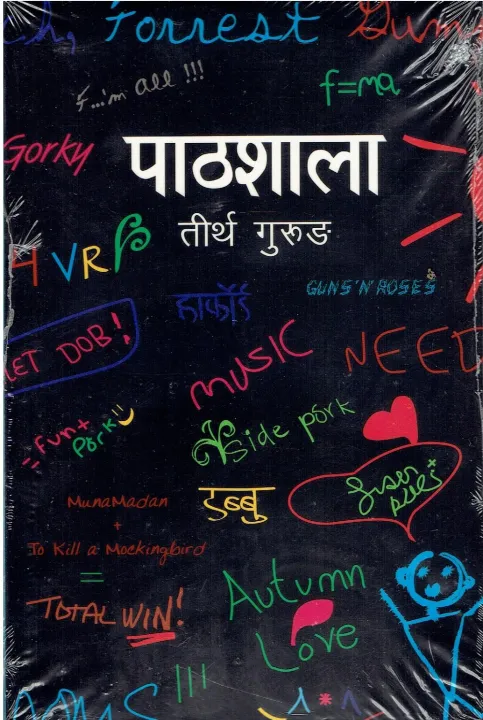 Forrest Gum
F...'m all !!!
f=ma
Gorky
पाठशाला
तीर्थ गुरुङ
VR
हार्फोर्ड
GUNS 'N' ROSES
LET DOB!
MUSIC
NEED
Fun+
Pork
Side pork
डब्बु
MunaMadan
+
To Kill a Mockingbird
=
TOTAL WIN!
Autumn
Love